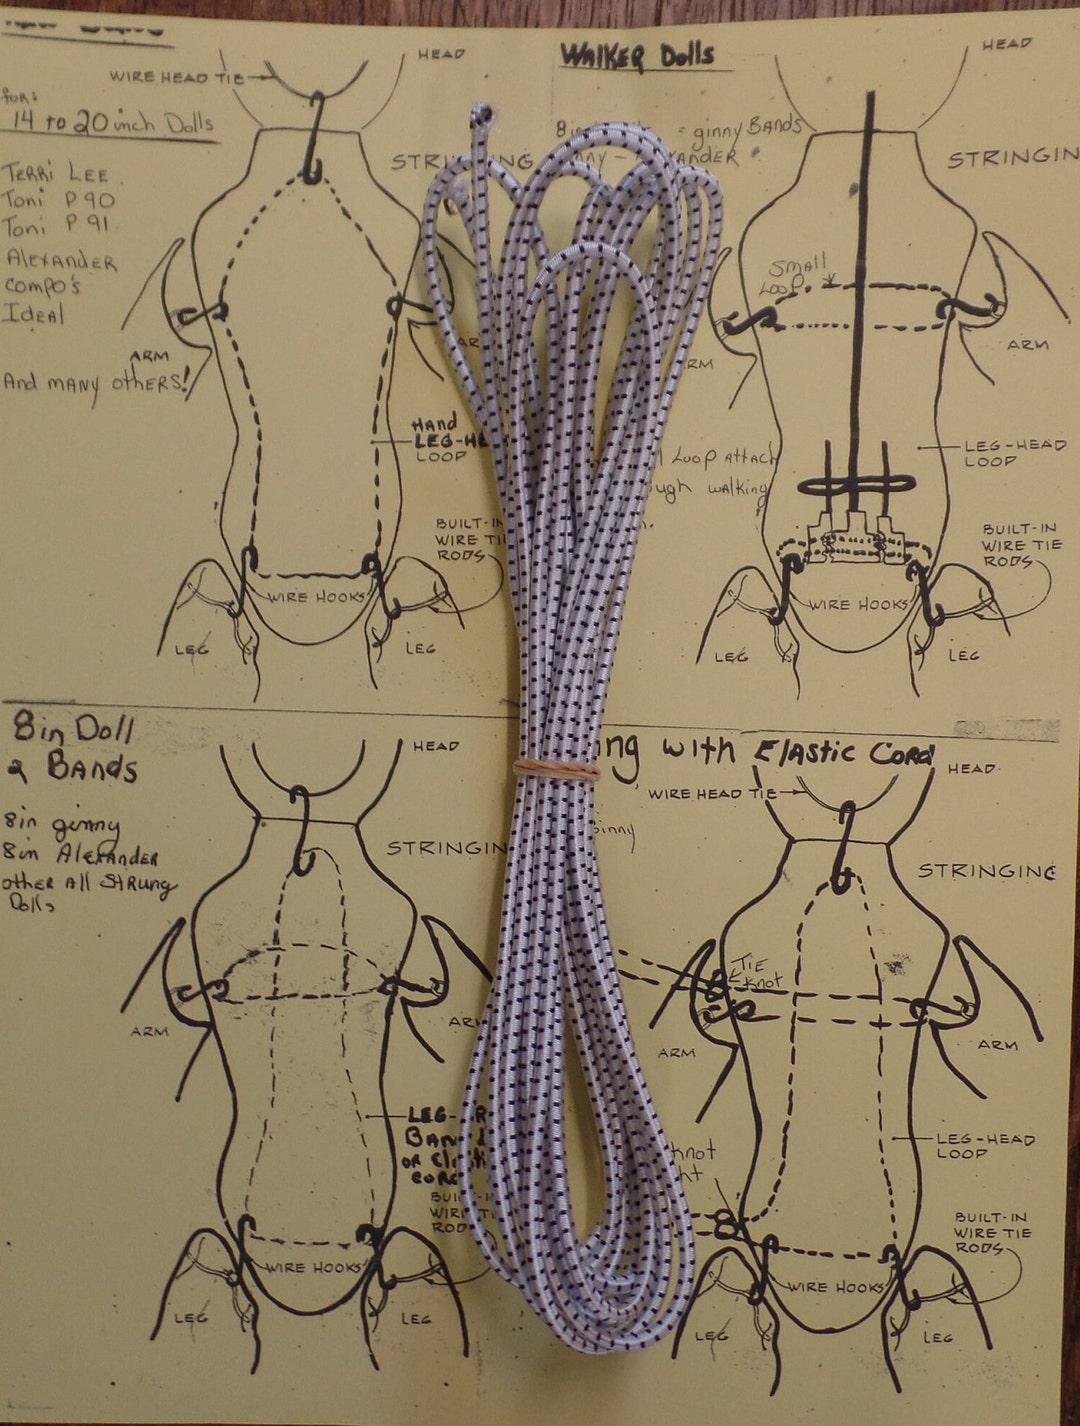 HEAD
WIRE HEAD TIE
for:
14 to 20 inch Dolls
TERRI LEE
Toni P 90
Toni P 91
Alexander
Compo's
Ideal
And many others!
STRINGING
ARM
Hand
LEG-HE
LOOP
BUILT-IN
WIRE TIE
RODS
WIRE HOOKS
LEG
LEG
WALKER Dolls
HEAD
8in
= ginny BANDS
STRINGIN
SMALL
LOOP
RM
ARM
LEG-HEAD
LOOP
LOOP ATTACH
walking
BUILT-IN
WIRE TIE
RODS
WIRE HOOKS
LEG
LEG
8in Doll
2 BANDS
8in ginny
8in Alexander
other All Strung
Dolls
HEAD
STRINGIN
ARM
AR
LEG-
BAN
OR
WIRE HOOKS
LEG
LEG
ng with Elastic Cord
HEAD
WIRE HEAD TIE
STRINGING
TIE
Knot
ARM
ARM
LEG-HEAD
LOOP
knot
BUILT-IN
WIRE TIE
RODS
WIRE HOOKS
LEG
LEG